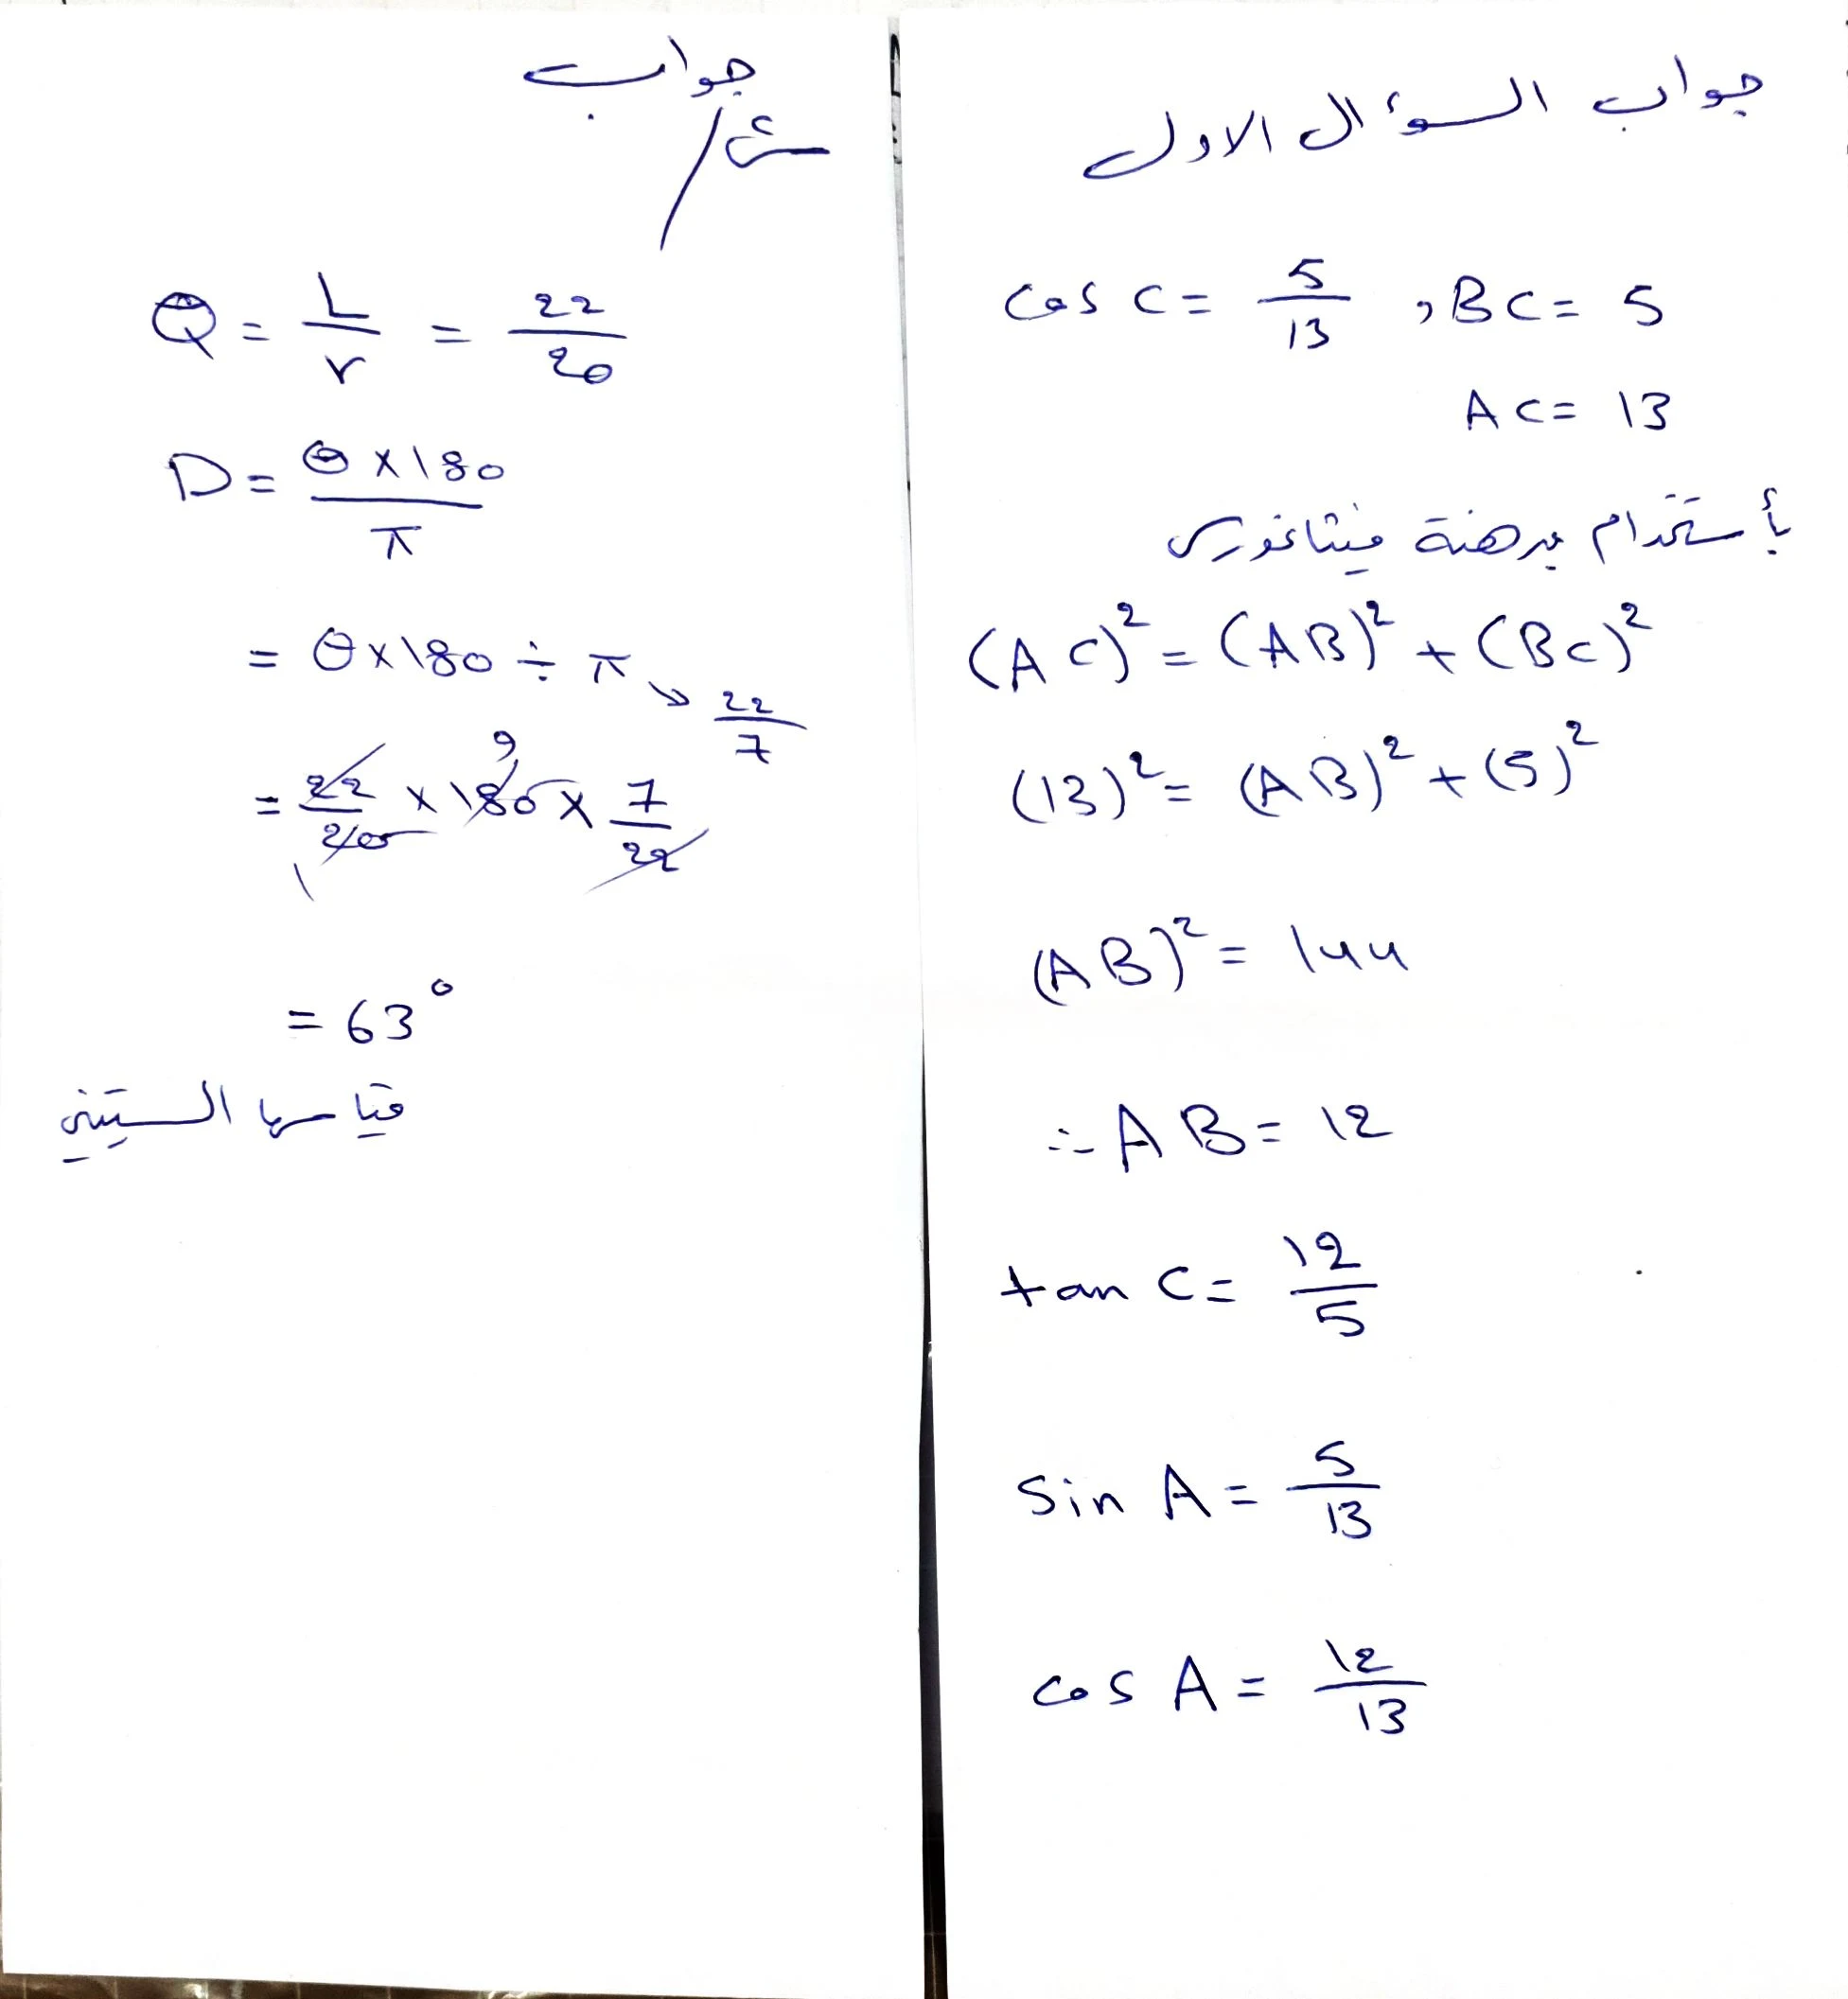 جواب السؤال الاول
cos C = 5/13 , BC = 5
AC = 13
بأستخدام مبرهنة فيثاغورس
(AC)² = (AB)² + (BC)²
(13)² = (AB)² + (5)²
(AB)² = 144
∴ AB = 12
tan C = 12/5
sin A = 5/13
cos A = 12/13
جواب
θ = L/r = 22/20
D = θ × 180 / π
= θ × 180 ÷ π → 22/7
= 22/20 × 180 × 7/22
9
1
= 63°
قياسها الستيني